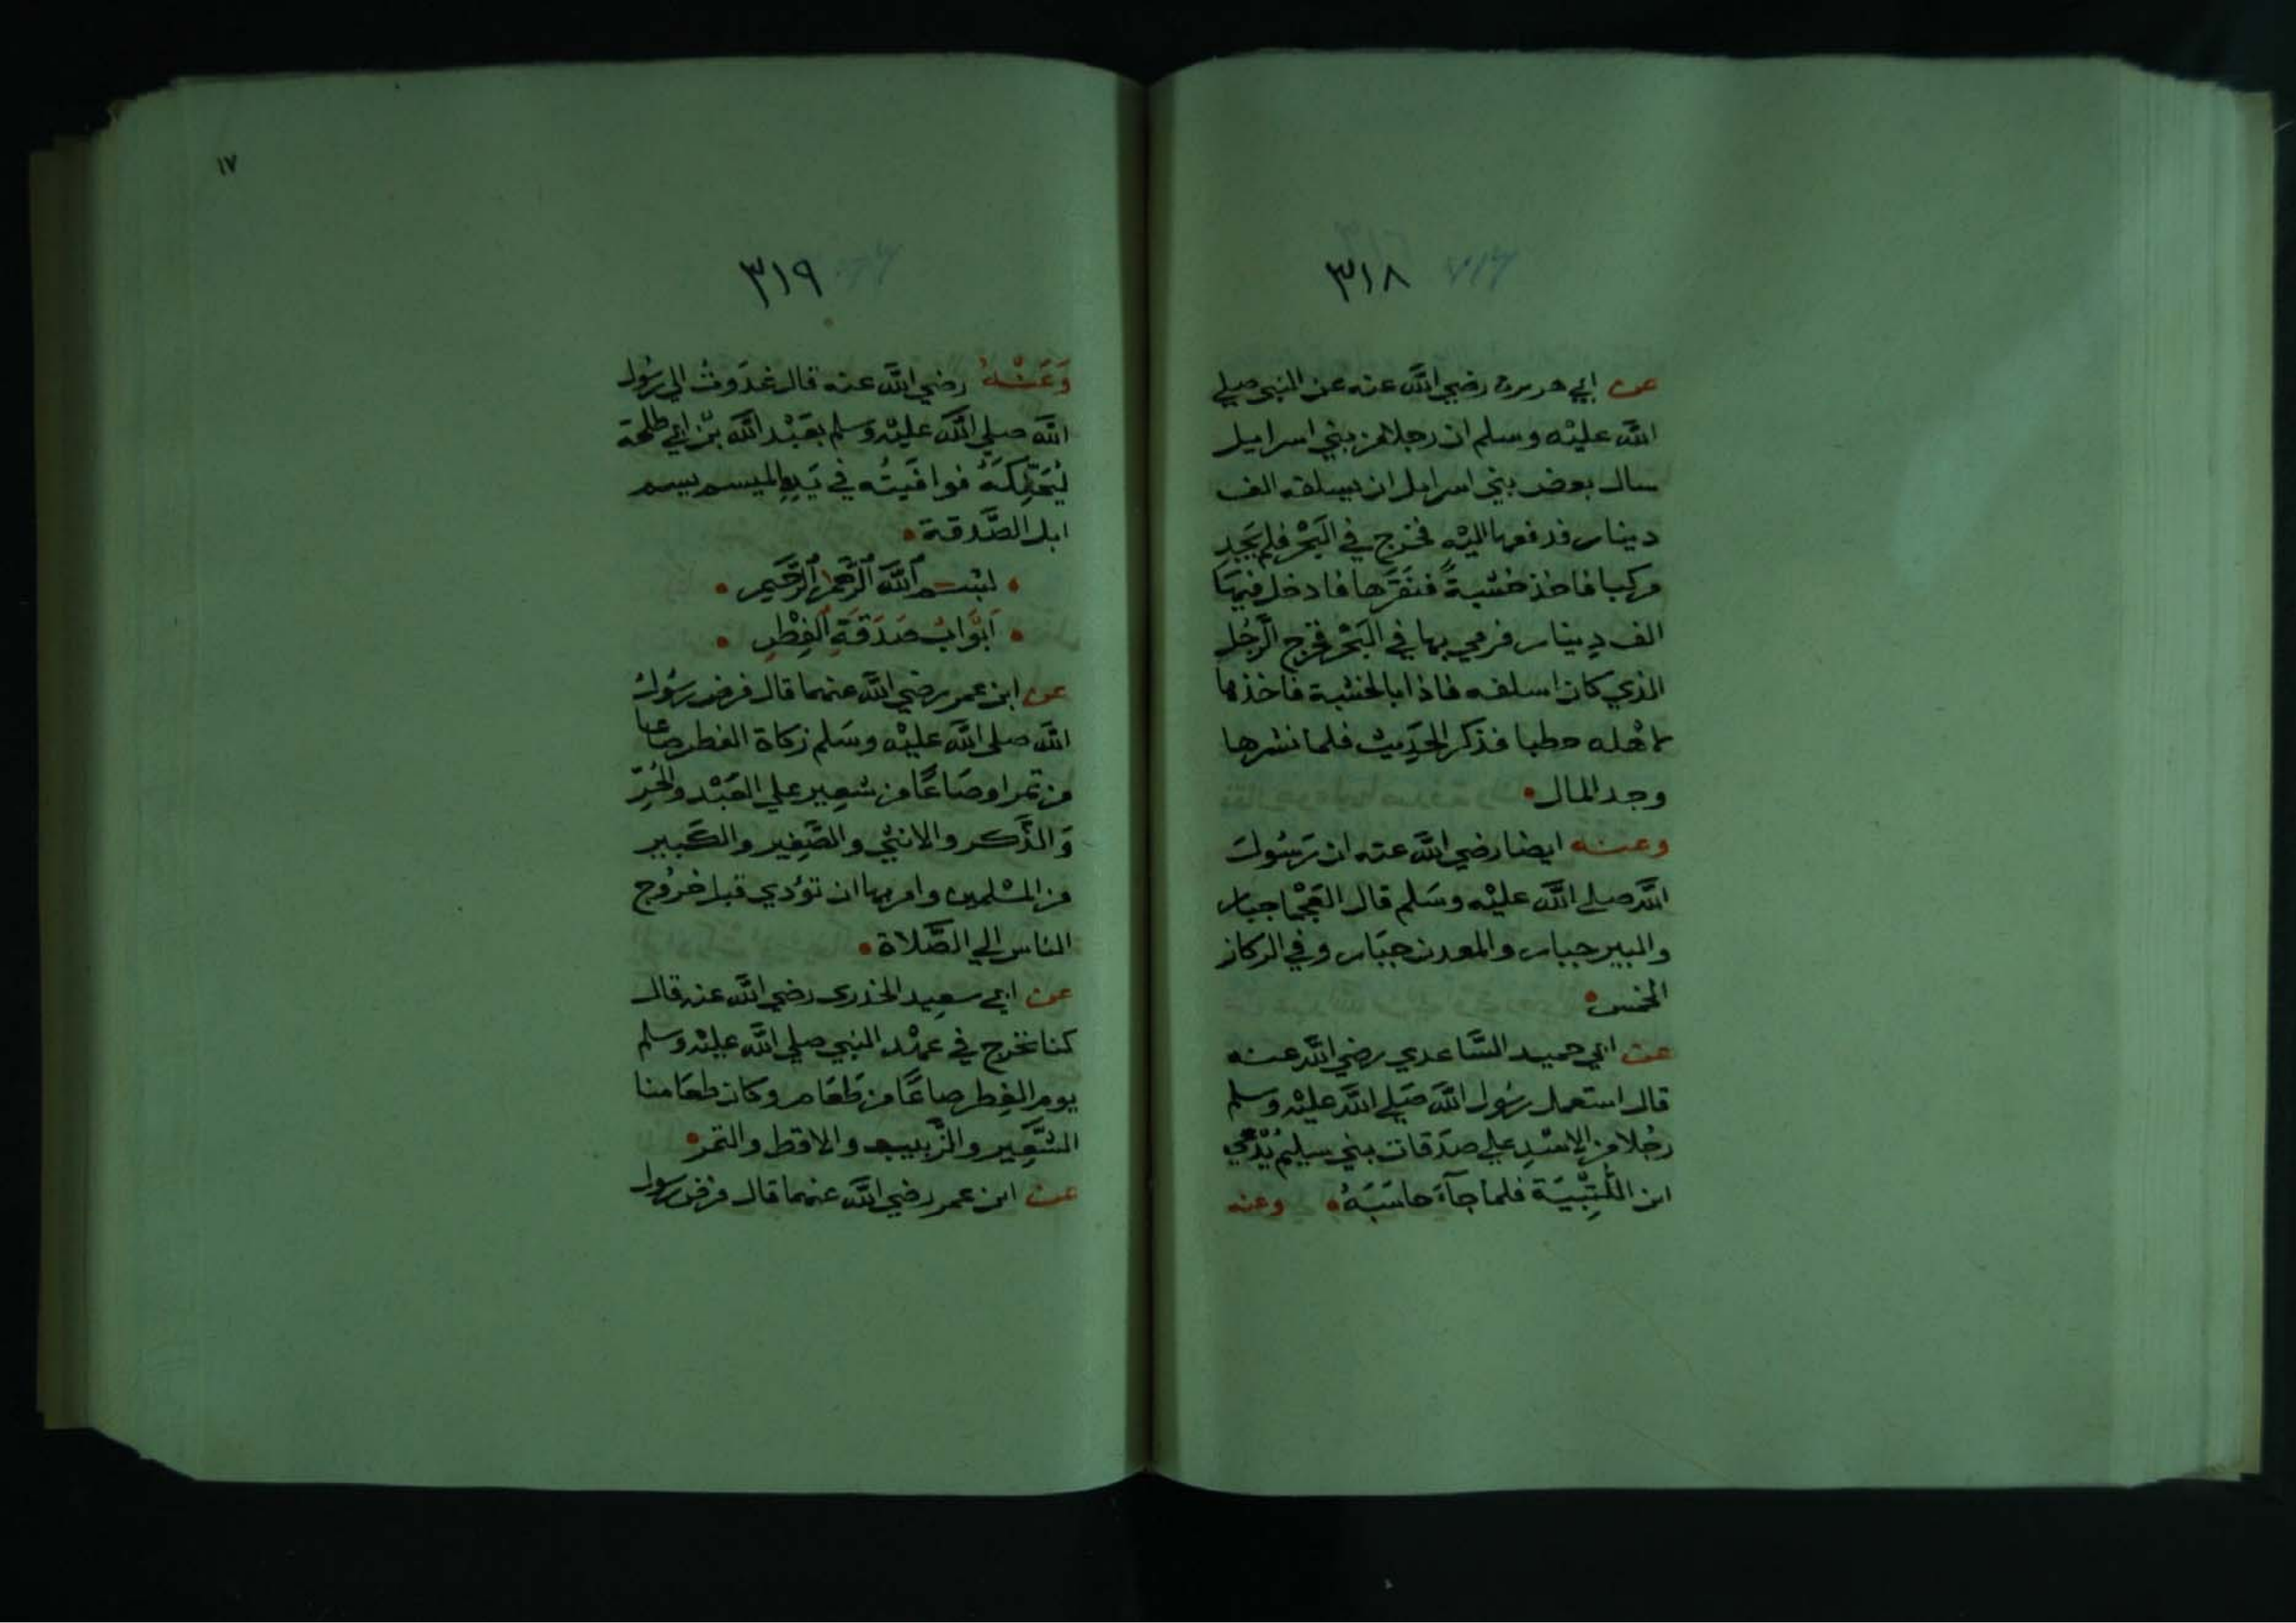 ٣١٨
عن ابي هريرة رضي الله عنه عن النبي صلي
الله عليْه وسلم ان رجلا من بني اسراييل
سال بعض بني اسرايل ان يسلفه الف
دينار فدفعها اليْه فخرج في البَحْر فلم يَجد
مركبا فاخذ خشبةً فنَقَرها فادخل فيهَا
الف دِينار فرمي بها في البَحْر فخرج الرَّجُل
الذي كان اسلفه فاذا بالخشبة فاخذها
لاهْله حطبا فذكر الحَدِيث فلما نشرها
وجد المال
وعنه ايضا رضي الله عنه ان رَسُولَ
الله صلي الله عليْه وسَلم قال العَجْما جبار
والبير جبار والمعدن جبَار وفي الركاز
الخمس
عن ابي حميد السَّاعدي رضي الله عنه
قال استعمل رسُول الله صَلي الله عليْه وسلم
رجُلا من الاسْدِ علي صدَقات بني سيليم يُدْعَي
ابن اللُّتْبِيَة فلما جآءَ حاسَبَهُ وعنه
١٧
٣١٩
وَعَنْهُ رضي الله عنه قال غدَوتُ الي رسُول
الله صلي الله عليْه وَسلم بعَبْد الله بْن ابي طلحة
ليُحَنِّكَهُ فوافَيتُه في يَدِهِ الميسم يسم
ابل الصَّدقة
بسْم الله الرَّحمن الرَّحيم
أبْوَابُ صَدَقَةِ الفِطْرِ
عن ابن عمر رضي الله عنهما قال فرض رسُولُ
الله صلي الله عليْه وسَلم زكاة الفطر صاعا
من تمر او صَاعًا من شعِير علي العَبْد والحُرِّ
وَالذَّكر والانثي والصَّغِير والكَبير
من المسْلمين وامر بها ان تؤدي قبل خرُوج
الناس الي الصَّلاة
عن ابي سعيد الخدري رضي الله عنه قال
كنا نخرج في عهْد النبي صلي الله عليْه وسلم
يوم الفِطر صاعًا من طعَام وكان طعَامنا
الشَّعِير والزَّبيب والاقط والتمر
عن ابن عمر رضي الله عنهما قال فرض رسول